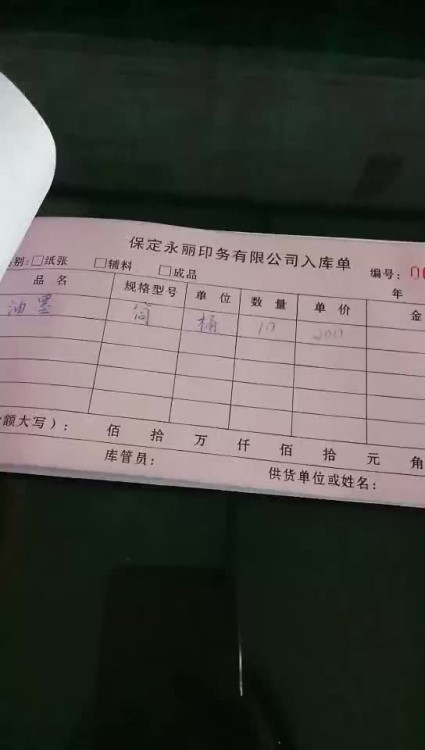 保定永丽印务有限公司入库单
别：□纸张 □辅料 □成品 编号：00
年
品名 规格型号 单位 数量 单价 金
油墨 筒 桶 10 200
额大写）： 佰 拾 万 仟 佰 拾 元 角
库管员： 供货单位或姓名：